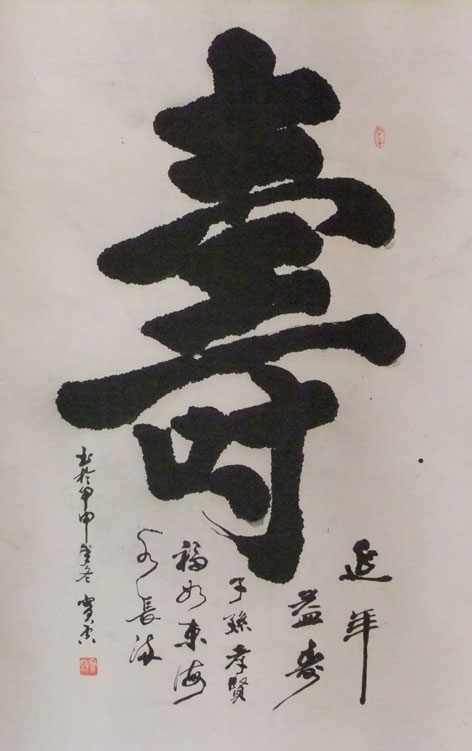 壽
延年
益壽
子孫孝賢
福如東海
水長流
書於甲申年冬